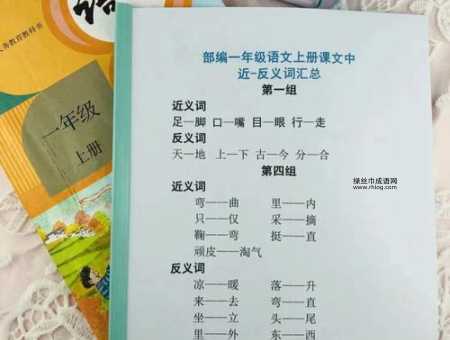 语
义务教育教科书
一年级
上册
部编一年级语文上册课文中
近-反义词汇总
第一组
近义词
足—脚 口—嘴 目—眼 行—走
反义词
天—地 上—下 古—今 分—合
第四组
近义词
弯——曲 里——内
只——仅 采——摘
鞠——弯 挺——直
顽皮——淘气
反义词
凉——暖 落——升
来——去 弯——直
坐——立 头——尾
里——外 东——西
绿丝巾成语网
www.rhlog.com